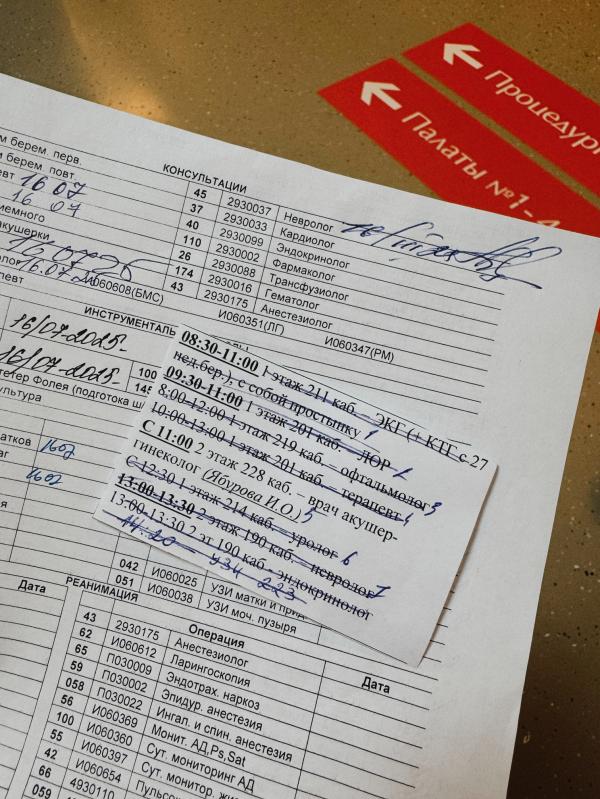 Процедурн
Палаты №1-4
м берем. перв.
м берем. повт.
евт 16 07
16 07
риемного
акушерки
16.07.25
16.07.2
певт
И060608(БМС)
КОНСУЛЬТАЦИИ
45 2930037 Невролог
37 2930033 Кардиолог
40 2930099 Эндокринолог
110 2930002 Фармаколог
26 2930088 Трансфузиолог
174 2930016 Гематолог
43 2930175 Анестезиолог
И060351(ЛГ) И060347(РМ)
ИНСТРУМЕНТАЛЬ
16/07-2025-
16/07-2025- 100
тетер Фолея (подготока ш 145
ультура
08:30-11:00 1 этаж 211 каб – ЭКГ (+ КТГ с 27
нед.бер.), с собой простынку 1
09:30-11:00 1 этаж 201 каб. – ЛОР 2
8:00-12:00 1 этаж 219 каб. – офтальмолог 3
10:00-13:00 1 этаж 201 каб. – терапевт 4
С 11:00 2 этаж 228 каб. – врач акушер-
гинеколог (Ябурова И.О.) 5
С 12:30 1 этаж 214 каб. – уролог 6
13:00-13:30 2 этаж 190 каб. – невролог 7
13:00-13:30 2 эт 190 каб. – эндокринолог
14:20 – УЗИ 223
атков 1607
аг
1602
ия
042 И060025 УЗИ матки и прид
051 И060038 УЗИ моч. пузыря
Дата
РЕАНИМАЦИЯ
Операция Дата
43 2930175 Анестезиолог
62 И060612 Ларингоскопия
65 П030009 Эндотрах. наркоз
59 П030002 Эпидур. анестезия
058 П030022 Ингал. и спин. анестезия
56 И060369 Монит. АД,Ps,Sat
100 И060360 Сут. мониторинг АД
55 И060397 Сут. монитор. жи
42 И060654 Пульсо
66 4930110
059